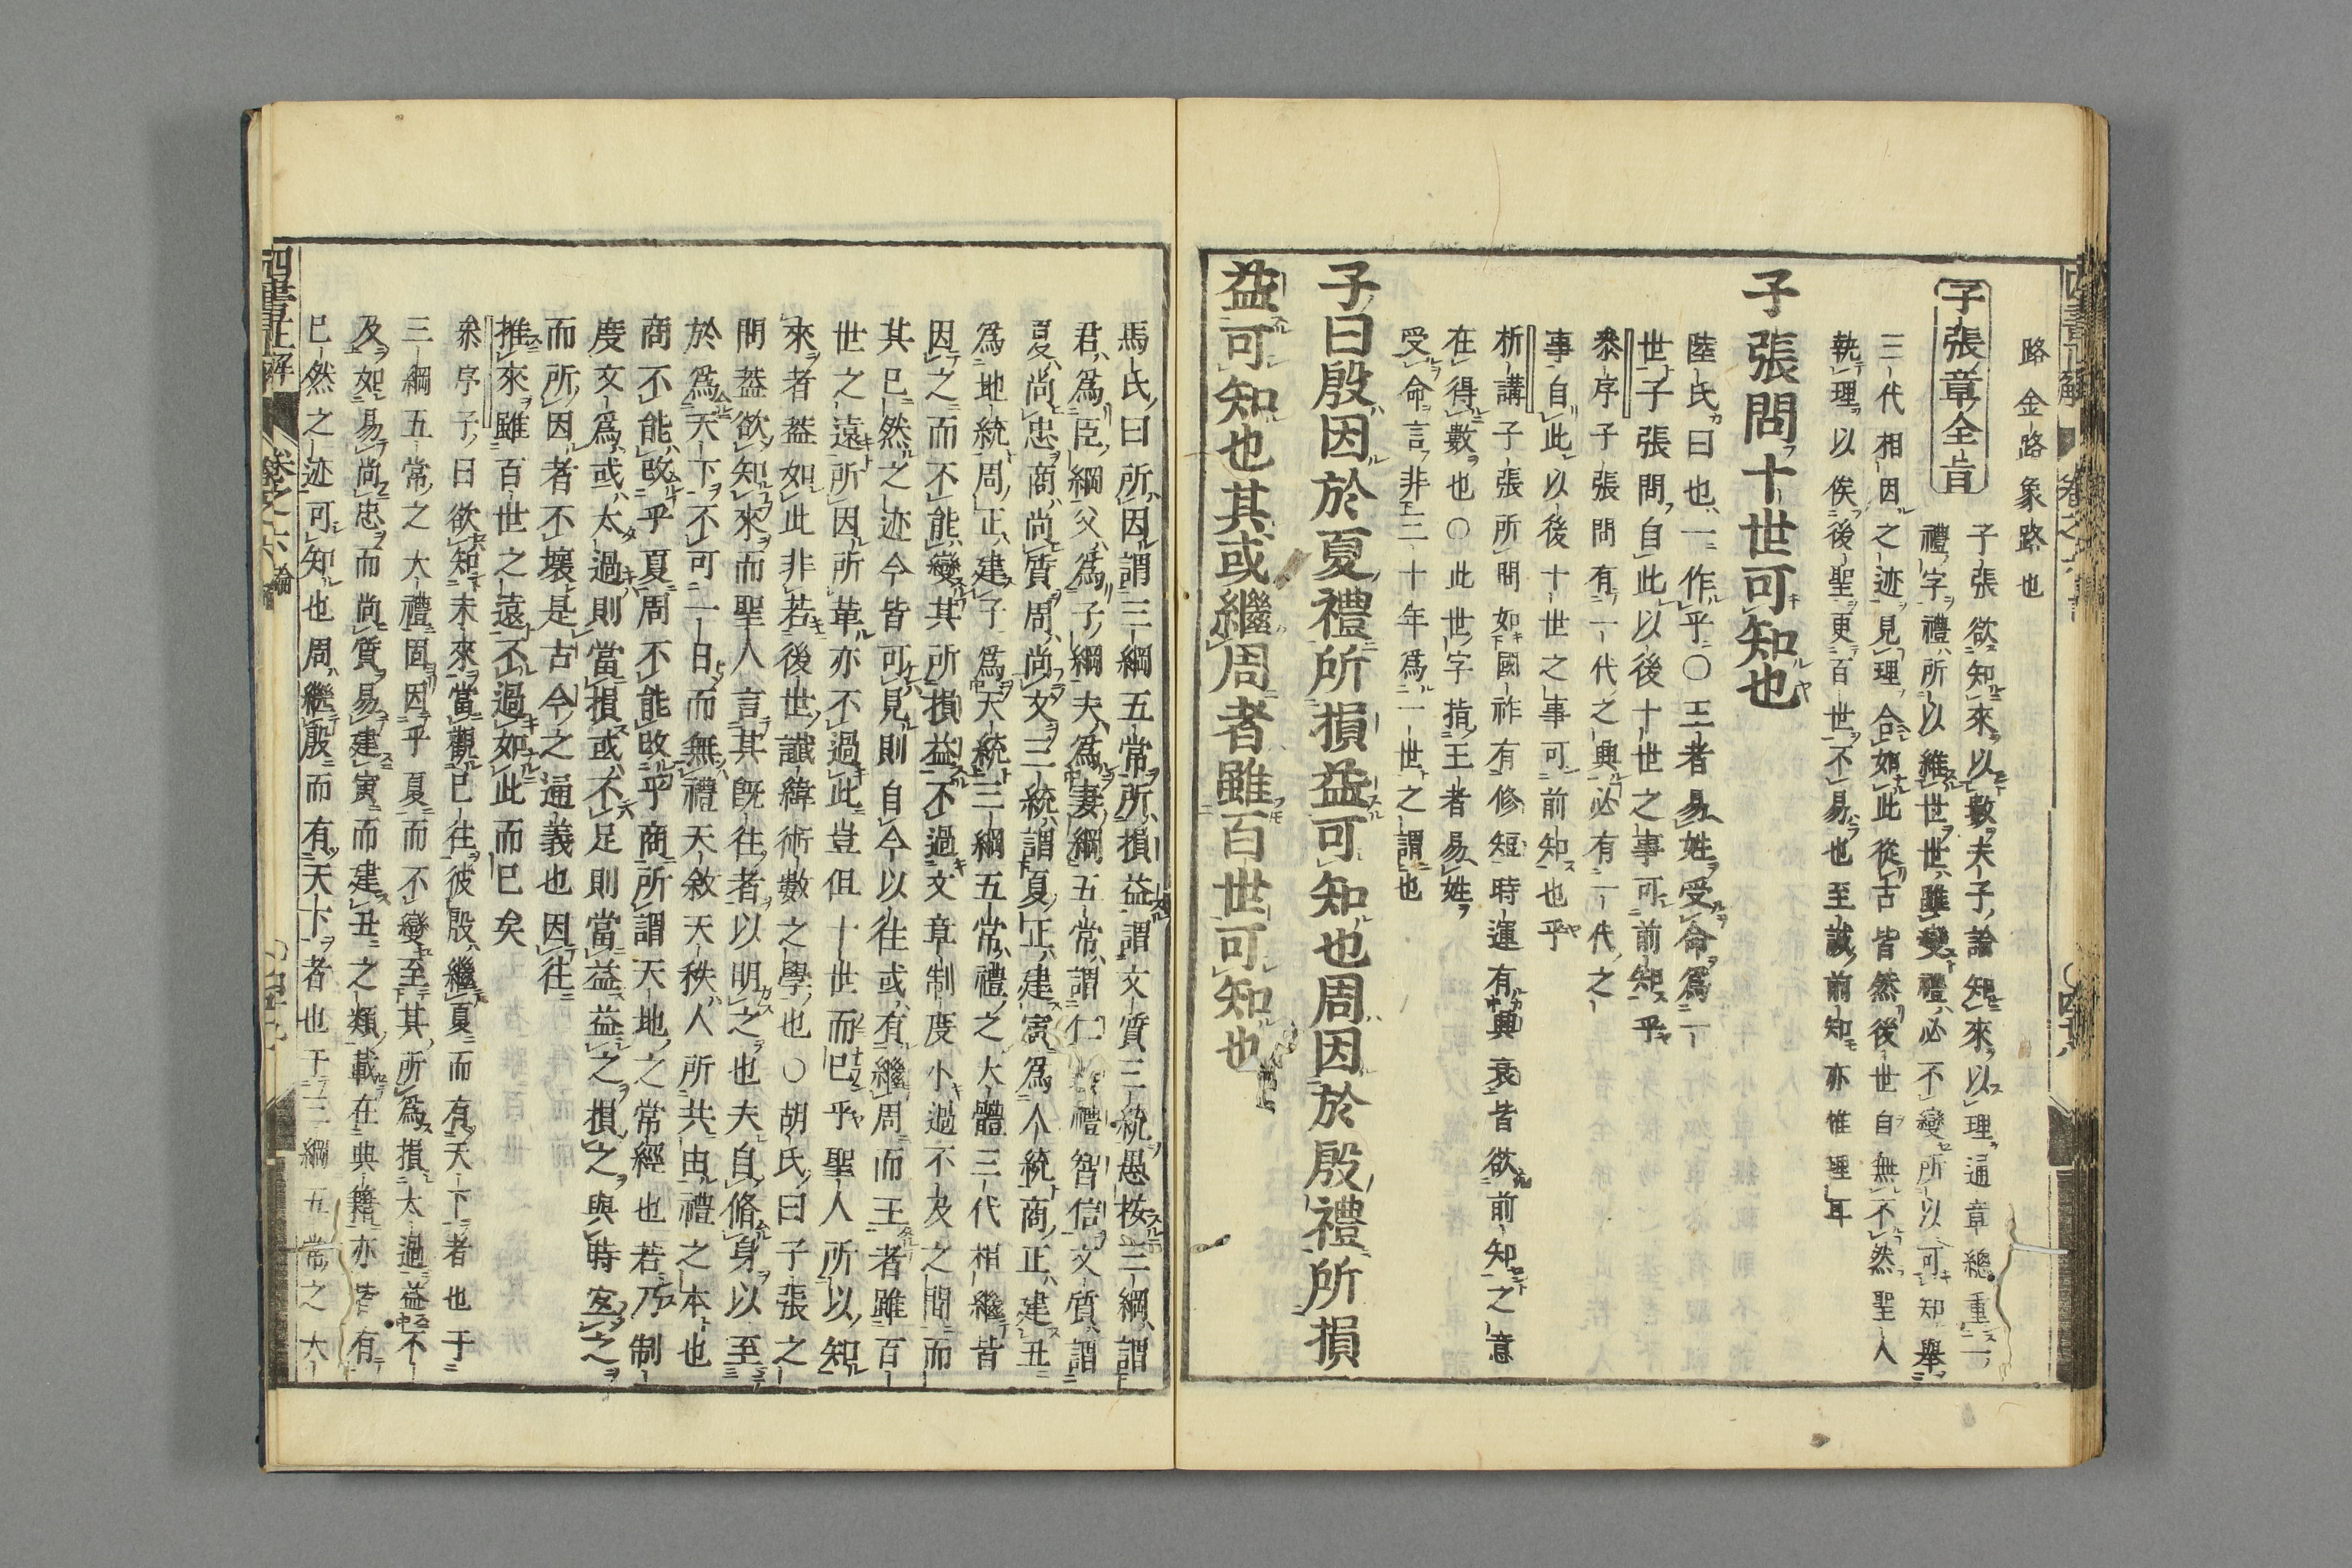 路金路象路也
子張章全旨
子張欲知來以數夫子論知來以理通章總重一
禮字禮所以維世世雖變禮必不變所以可知舉
三代相因之迹見理合如此從古皆然後世自無不然聖人
執理以俟後聖更百世不易也至誠前知亦惟理耳
子張問十世可知也
陸氏曰也一作乎〇王者易姓受命爲一
世子張問自此以後十世之事可前知乎
叅序子張問有一代之興必有一代之
事自此以後十世之事可前知也乎
析講子張所問如國祚有修短時運有興衰皆欲前知之意
在得數也〇此世字指王者易姓
受命言非三十年爲一世之謂也
子曰殷因於夏禮所損益可知也周因於殷禮所損
益可知也其或繼周者雖百世可知也
馬氏曰所因謂三綱五常所損益謂文質三統愚桉三綱謂
君爲臣綱父爲子綱夫爲妻綱五常謂仁禮智信文質謂
夏尚忠商尚質周尚文三統謂夏正建寅爲人統商正建丑
爲地統周正建子爲天統三綱五常禮之大體三代相繼皆
因之而不能變其所損益不過文章制度小過不及之間而
其已然之迹今皆可見則自今以往或有繼周而王者雖百
世之遠所因所革亦不過此豈但十世而已乎聖人所以知
來者葢如此非若後世讖緯術數之學也〇胡氏曰子張之
問葢欲知來而聖人言其旣往者以明之也夫自脩身以至
於爲天下不可一日而無禮天敘天秩人所共由禮之本也
商不能改乎夏周不能改乎商所謂天地之常經也若乃制
度文爲或太過則當損或不足則當益益之損之與時宐之
而所因者不壞是古今之通義也因往
推來雖百世之遠不過如此而已矣
叅序子曰欲知未來當觀已往彼殷繼夏而有天下者也于
三綱五常之大禮固因乎夏而不變至其所爲損太過益不
及如易尚忠而尚質易建寅而建丑之類載在典籍亦皆有
已然之迹可知也周繼殷而有天下者也于三綱五常之大
四書正解
卷之六